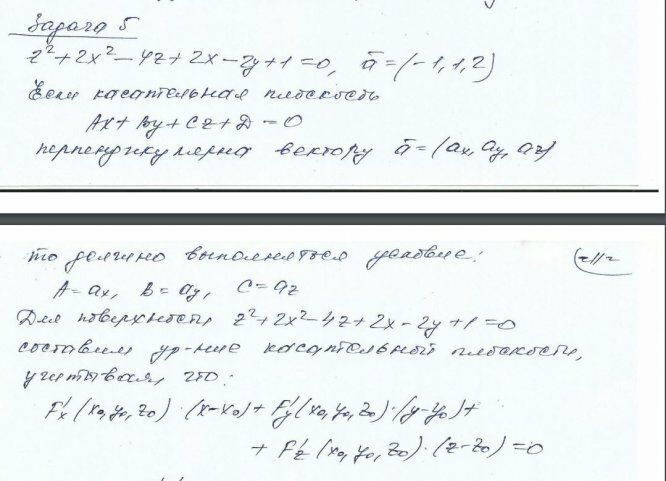 Задача 5
z²+2x²-4z+2x-2y+1=0, ā=(-1,1,2)
Если касательная плоскость
Ax+By+Cz+D=0
перпендикулярна вектору ā=(ax, ay, az)
то должно выполняться условие:
A=ax, B=ay, C=az
Для поверхности z²+2x²-4z+2x-2y+1=0
составим ур-ние касательной плоскости,
учитывая, что:
F'x(x₀,y₀,z₀)·(x-x₀)+F'y(x₀,y₀,z₀)·(y-y₀)+
+F'z(x₀,y₀,z₀)·(z-z₀)=0